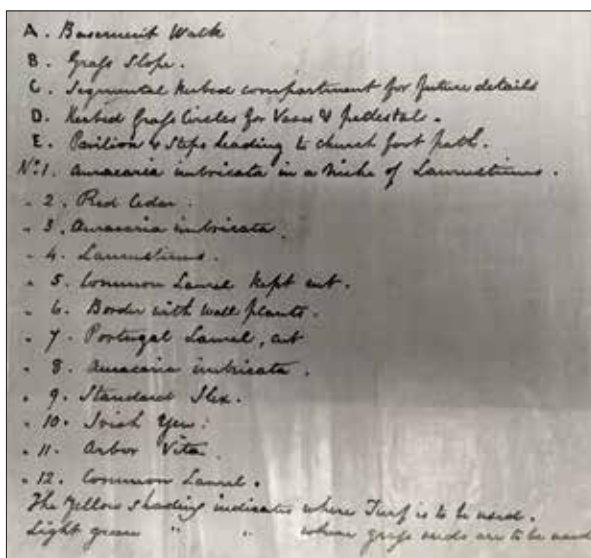 A. Basement Walk
B. Grass Slope.
C. Segmental Kerbed compartment for future details
D. Kerbed Grass Circles for Vases & pedestal.
E. Pavilion & Steps leading to church foot path.
No. 1. Auracaria imbricata in a Niche of Laurustinus.
" 2. Red Cedar.
" 3. Auracaria imbricata.
" 4. Laurustinus.
" 5. Common Laurel kept cut.
" 6. Border with wall plants.
" 7. Portugal Laurel, cut
" 8. Auracaria imbricata.
" 9. Standard Ilex.
" 10. Irish Yew.
" 11. Arbor Vita.
" 12. Common Laurel.
The Yellow shading indicates where Turf is to be used.
Light green " " where grass seeds are to be used